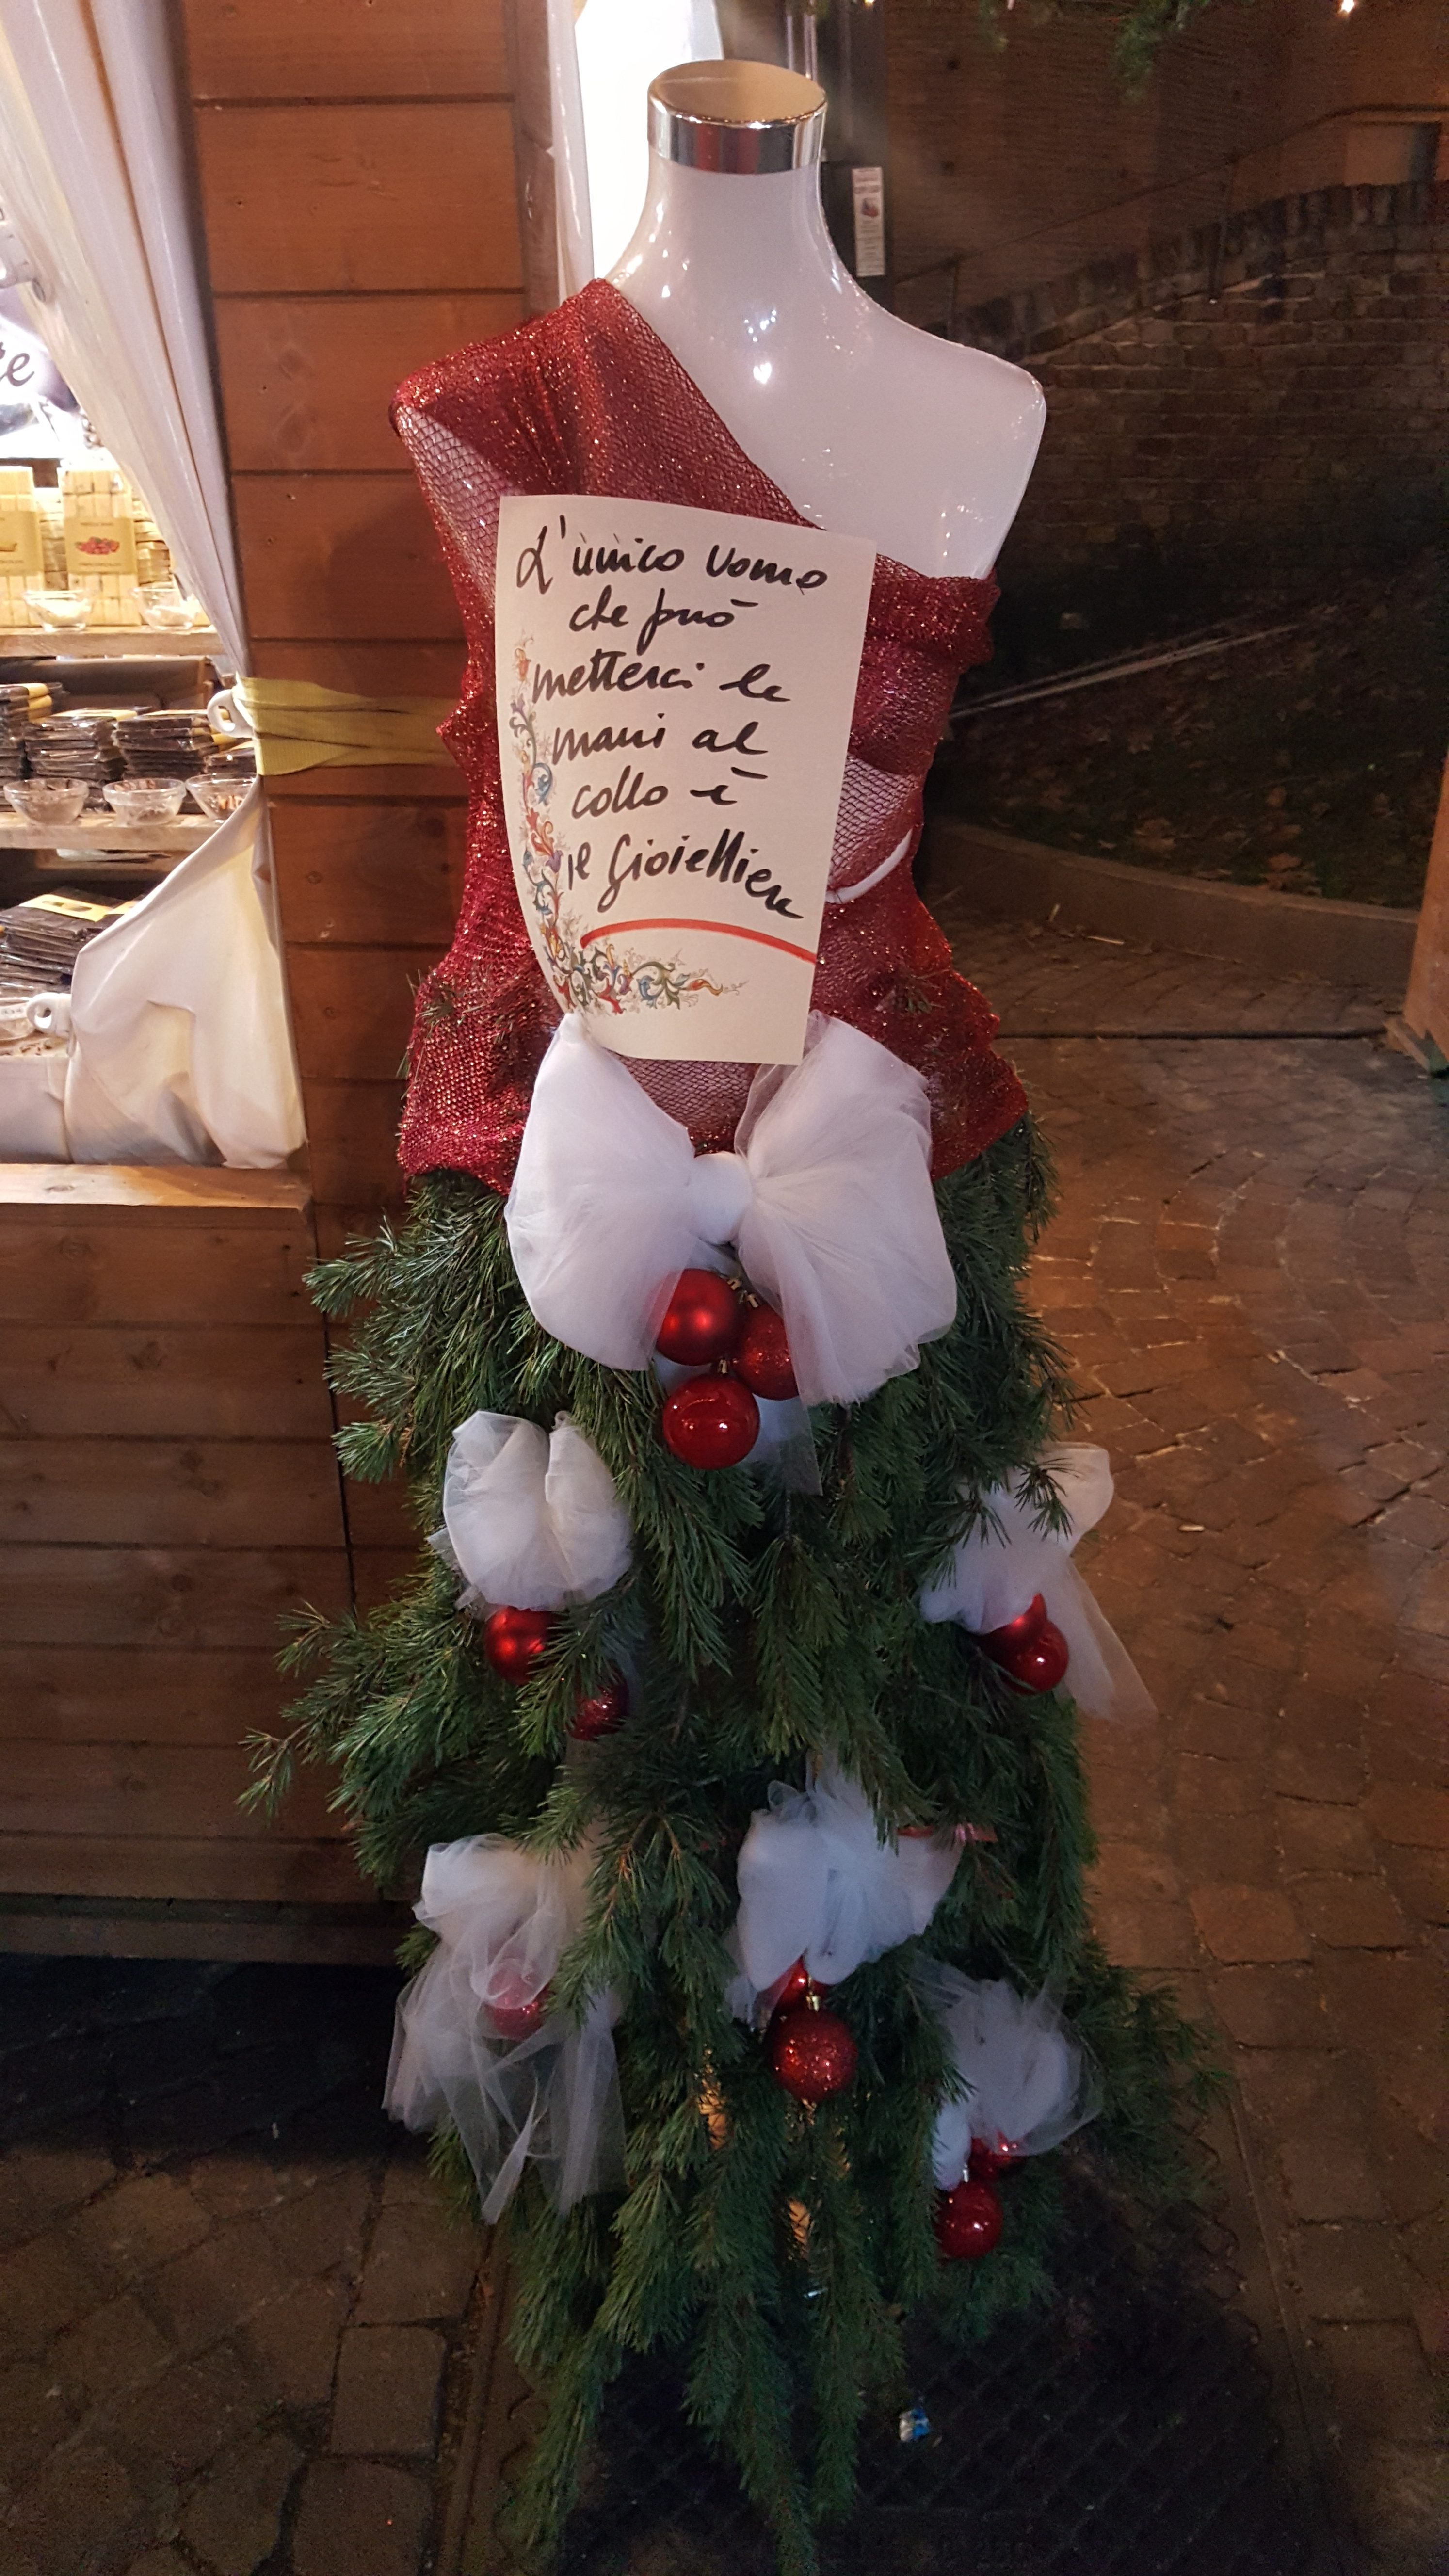 L'unico uomo
che può
metterci le
mani al
collo è
il Gioielliere